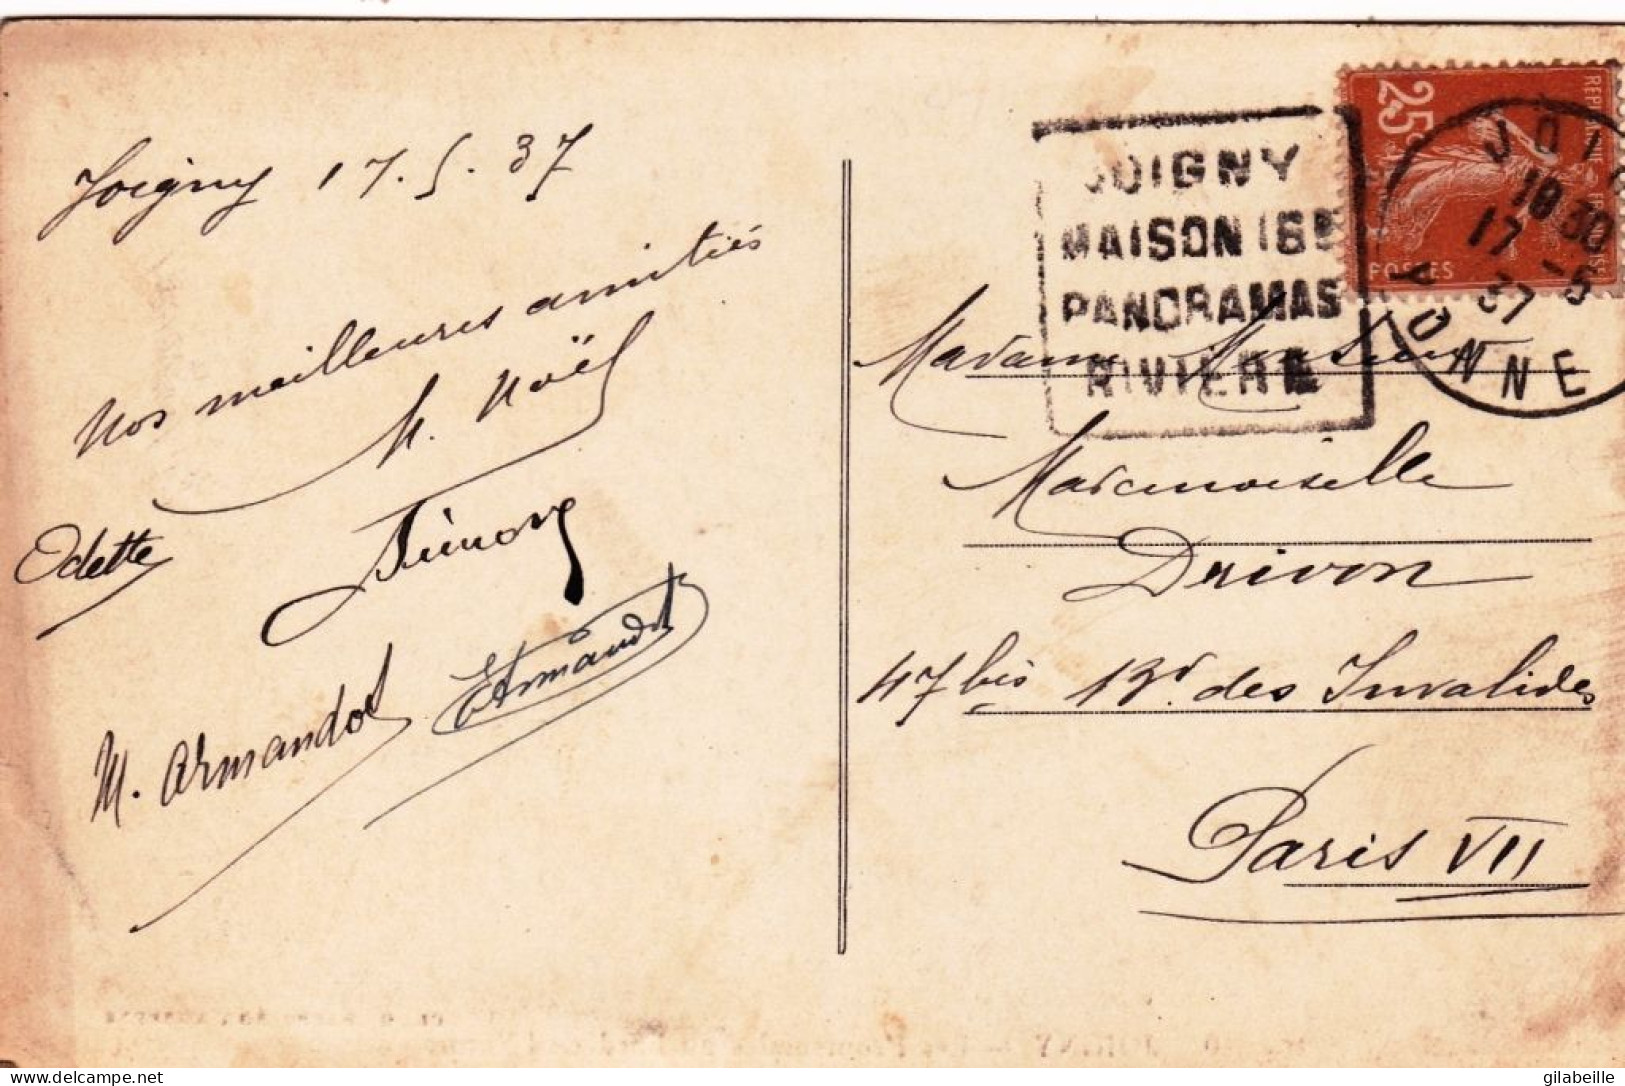 Joigny 17.5.37
Nos meilleures amitiés
M. Noël
Odette
Simone
M. Armandot
E Armandot
JOIGNY
MAISON 16E
PANORAMAS
RIVIÈRE
25c
POSTES
JOI
18 30
17 -5
37
YONNE
Madame Monsieur
Mademoiselle
Drivon
47 bis Bd. des Invalides
Paris VII
delcampe.net
gilabeille